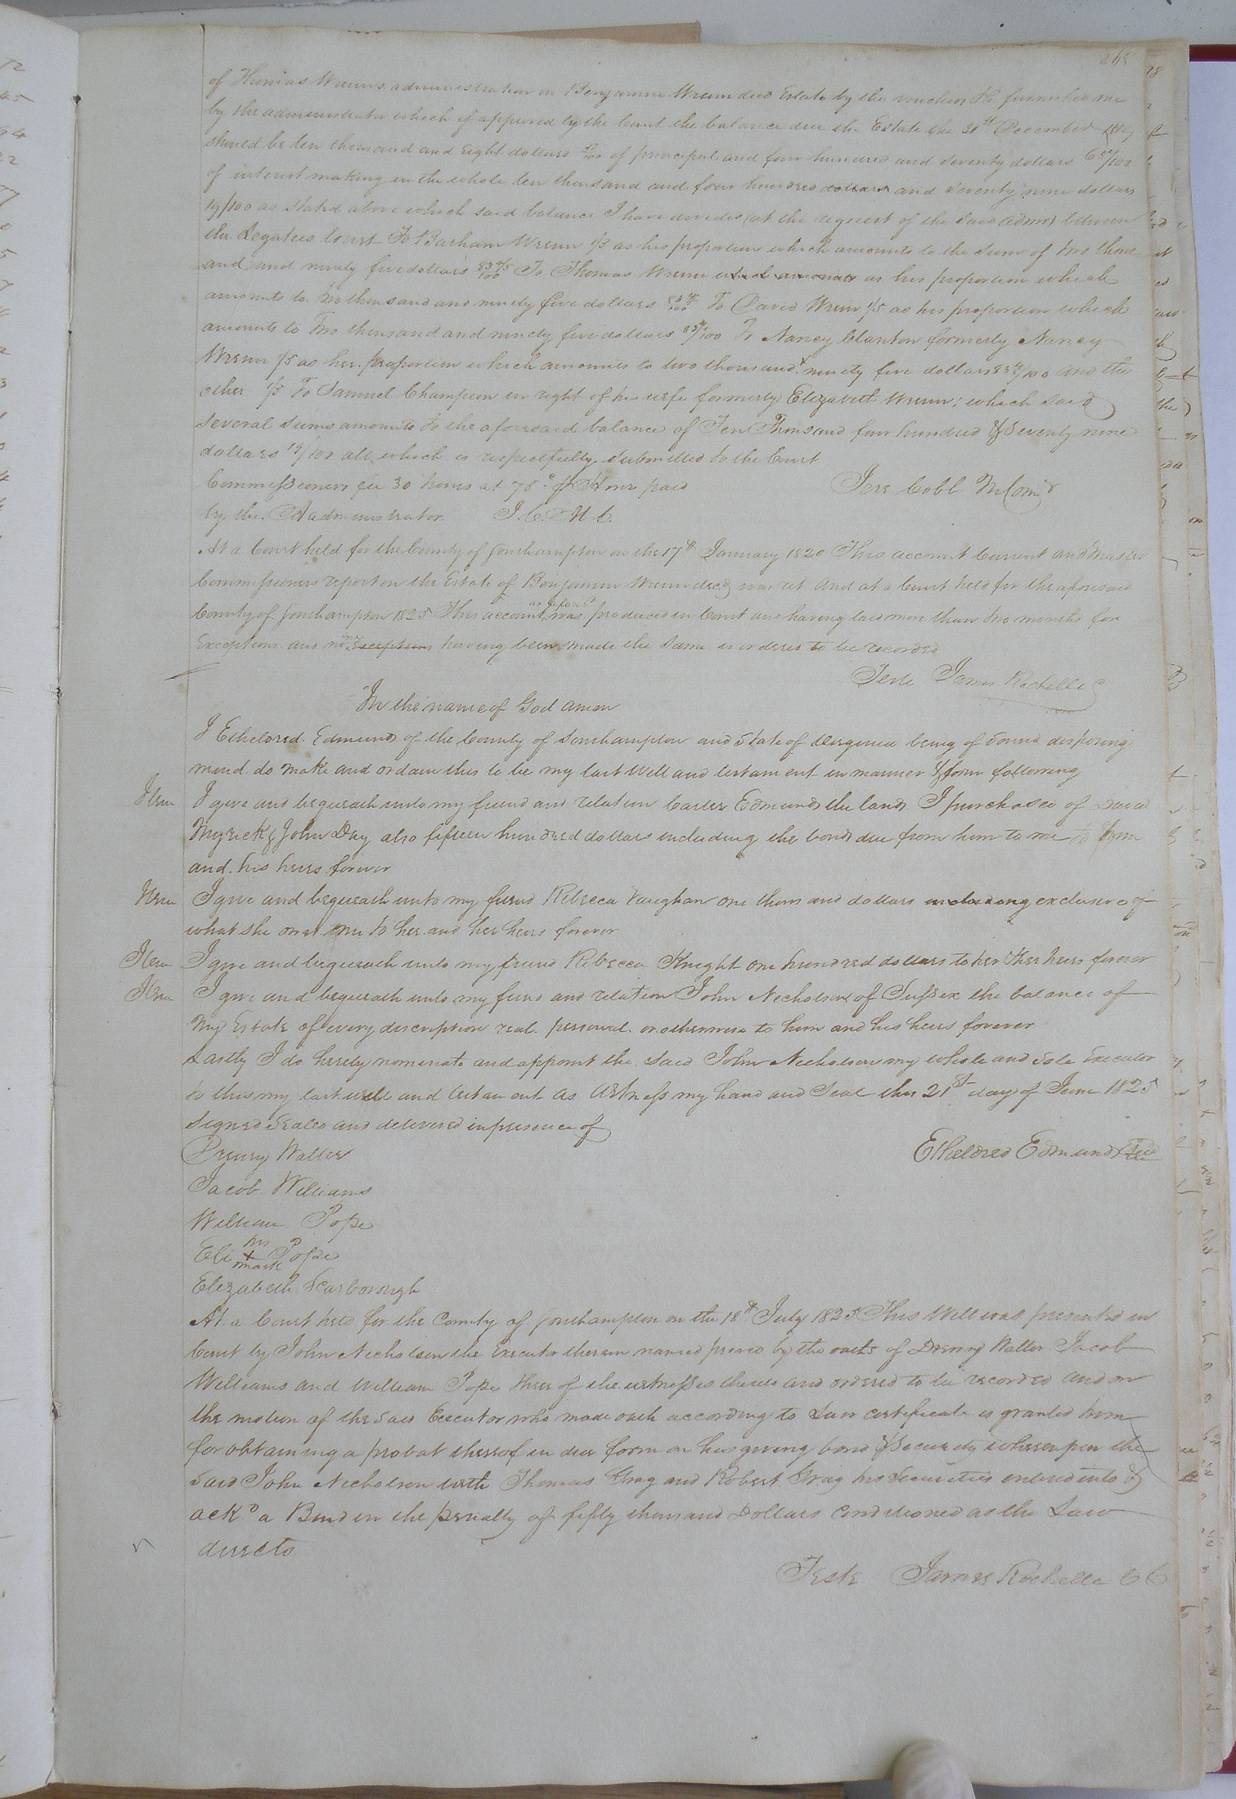 of Thomas Wrenns administration on Benjamin Wrenn decd Estate by the vouchers furnished me
by the administrator which if approved by the Court the balance due the Estate the 31st December
should be ten thousand and Eight dollars of principal and four hundred and seventy dollars
of interest making in the whole ten thousand and four hundred dollars and seventy nine dollars
19/100 as stated above which said balance I have divided (at the request of the said admor) between
the Legatees to wit To Barham Wrenn 1/5 as his proportion which amounts to the sum of two thous
and and ninety five dollars To Thomas Wrenn as his proportion which
amounts to two thousand and ninety five dollars To David Wrenn 1/5 as his proportion which
amounts to Two thousand and ninety five dollars To Nancy Clanton formerly Nancy
Wrenn 1/5 as her proportion which amounts to two thousand & ninety five dollars and the
other 1/5 To Samuel Champion in right of his wife formerly Elizabeth Wrenn; which said
several sums amounts to the aforesaid balance of Ten Thousand four hundred & Seventy nine
dollars 19/100 all which is respectfully submitted to the Court
Commissioners fee 30 hours at 75c pr Hour paid
Jere Cobb M Comr
by the Administrator J.C. M.C.
At a Court held for the County of Southampton on the 17th January 1820 This account Current and Master
Commissioners report on the Estate of Benjamin Wrenn decd was ret And at a Court held for the aforesaid
County of Southampton 1825 This account was produced in Court and having laid more than two months for
Exceptions and none Exceptions having been made the same is ordered to be recorded
Teste James Rochelle C
In the name of God amen
I Etheldred Edmunds of the County of Southampton and State of Virginia being of sound disposing
mind do make and ordain this to be my last Will and testament in manner & form following
Item I give and bequeath unto my friend and relation Carter Edmunds the lands I purchased of David
Myrick & John Day also fifteen hundred dollars including the bonds due from him to me to him
and his heirs forever
Item I give and bequeath unto my friend Rebecca Vaughan one thousand dollars including exclusive of
what she owes me to her and her heirs forever
Item I give and bequeath unto my friend Rebecca Knight one hundred dollars to her & her heirs forever
Item I give and bequeath unto my friend and relation John Nicholson of Sussex the balance of
my Estate of every description real personal or otherwise to him and his heirs forever
Lastly I do hereby nominate and appoint the said John Nicholson my whole and sole Executor
to this my last will and testament as Witness my hand and Seal this 21st day of June 1825
Signed Sealed and delivered in presence of
Etheldred Edmunds Seal
Drewry Waller
Jacob Williams
William Pope
Eli his + mark Pope
Elizabeth Scarborough
At a Court held for the County of Southampton on the 18th July 1825 This Will was presented in
Court by John Nicholson the Executor therein named proved by the oaths of Drewry Waller Jacob
Williams and William Pope three of the witnesses thereto and ordered to be recorded and on
the motion of the said Executor who made oath according to Law certificate is granted him
for obtaining a probat thereof in due form on his giving bond & security whereupon the
said John Nicholson with Thomas Gray and Robert Gray his securities entered into &
ackd a Bond in the penalty of fifty thousand Dollars conditioned as the Law
directs
Teste James Rochelle C C